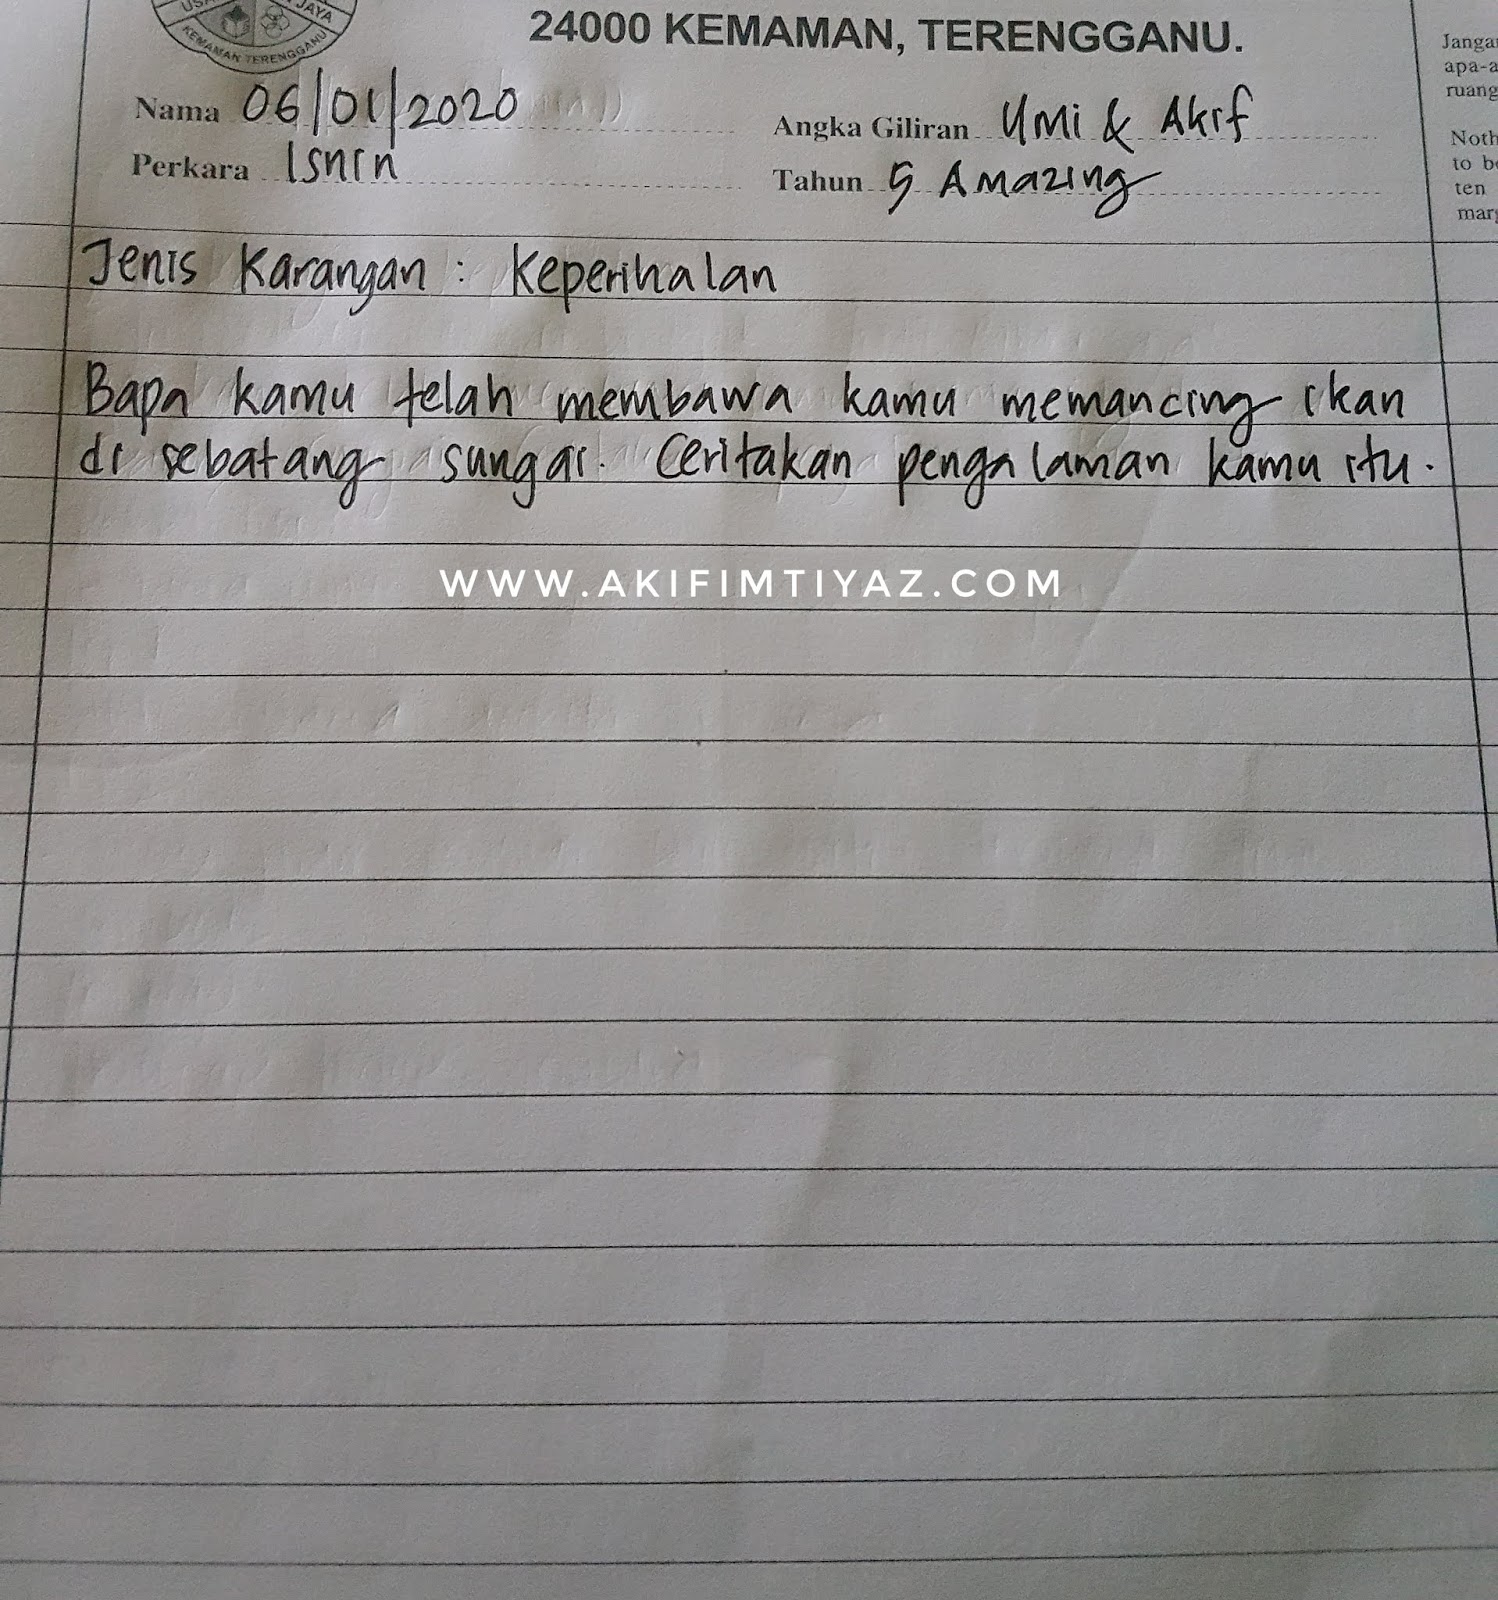 JAYA
KEMAMAN TERENGGANU
24000 KEMAMAN, TERENGGANU.
Nama 06/01/2020
Angka Giliran Umi & Akif
Perkara Isnin
Tahun 5 Amazing
Jenis Karangan : Keperihalan
Bapa kamu telah membawa kamu memancing ikan
di sebatang sungai. Ceritakan pengalaman kamu itu.
WWW.AKIFIMTIYAZ.COM
ruang
ten